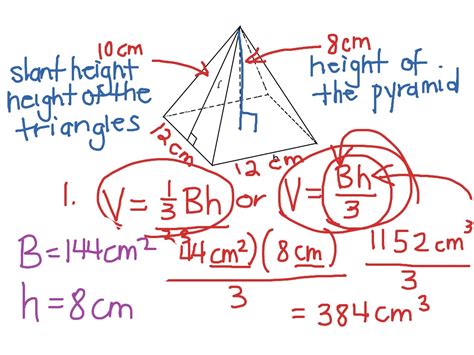 10 cm
8 cm
slant height
height of the
triangles
height of
the pyramid
12 cm
12 cm
1. V = 1/3 Bh or V = Bh/3
B = 144 cm²
h = 8 cm
(8 cm)
3
1152 cm³
3
= 384 cm³